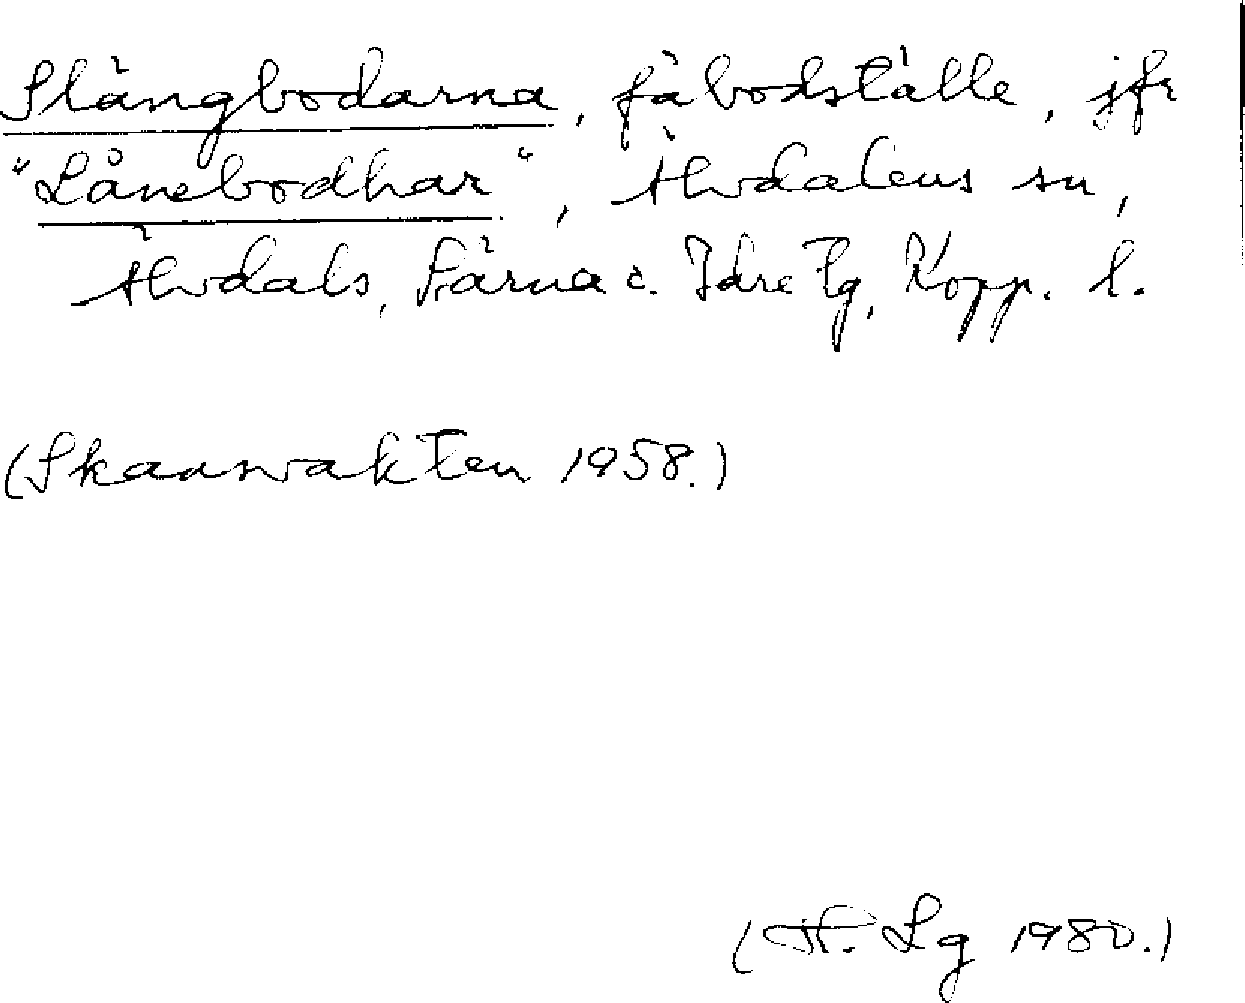 Slängbodarna, fäbodställe, jfr
"Lånebodhar", Älvdalens sn,
Älvdals, Särna o. Idre tg, Kopp. l.
(Skansvakten 1958.)
(H. Lg 1980.)